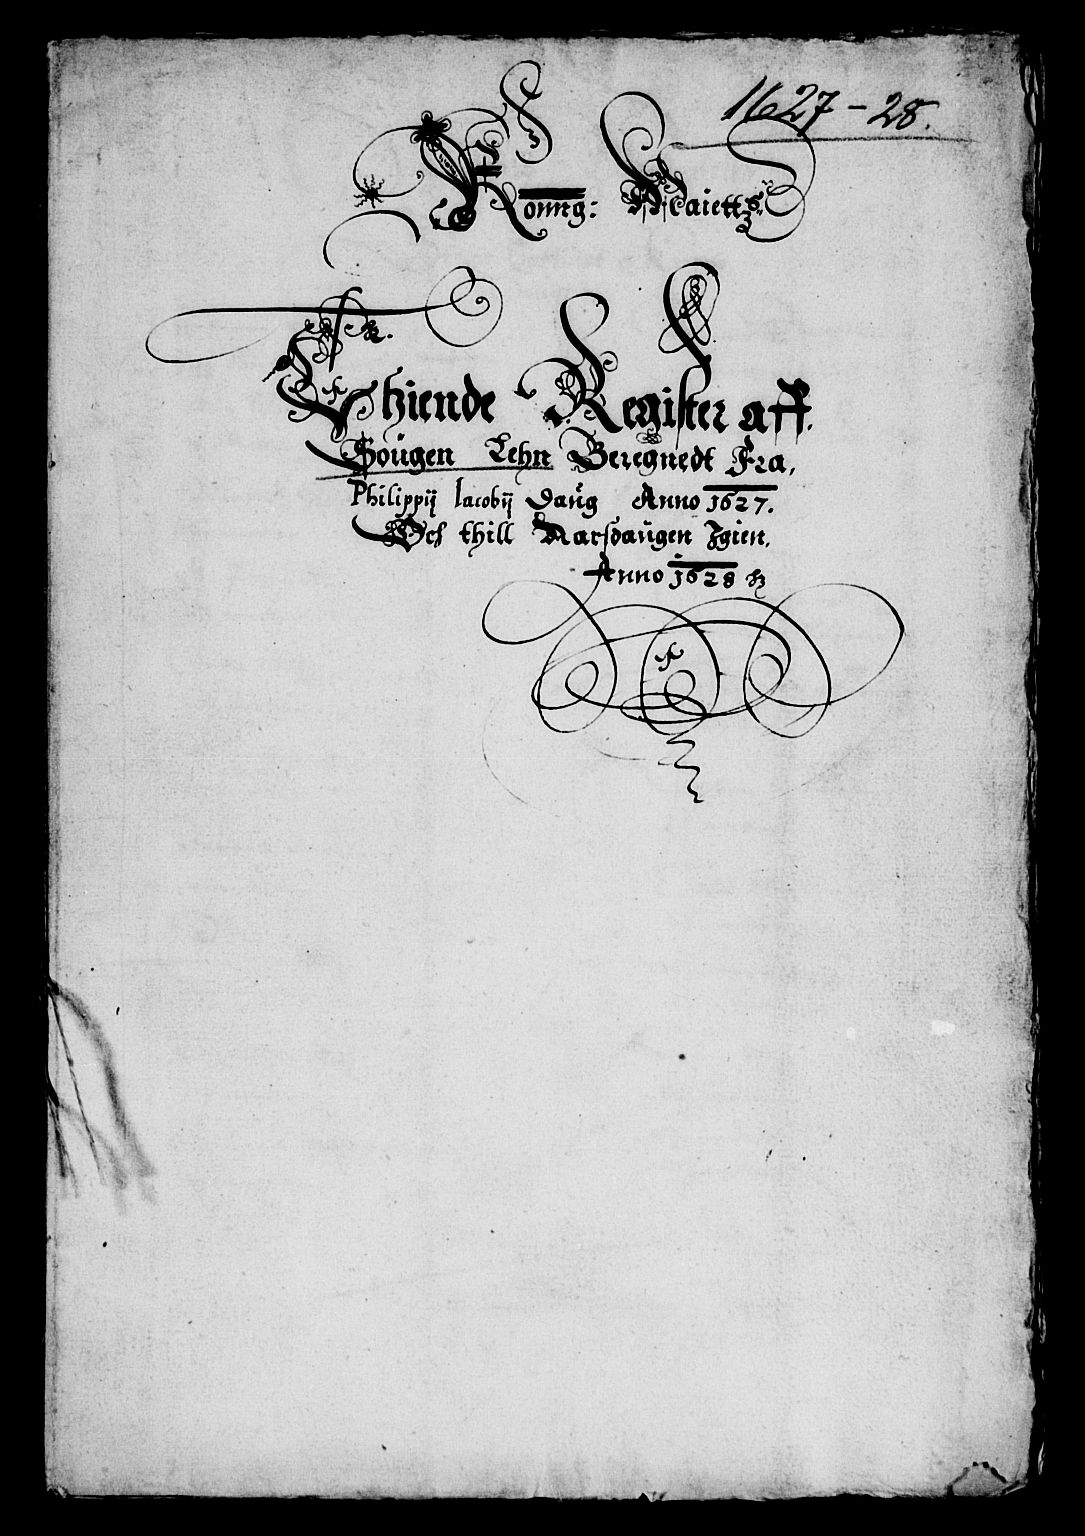 1627-28.
Konng: Maiettz.
Thiende Register aff.
Gougen Lehn Beregnedt Fra,
Philippij Jacobij Daug Anno 1627.
Och thill Aarsdaugen Jgien.
Anno 1628